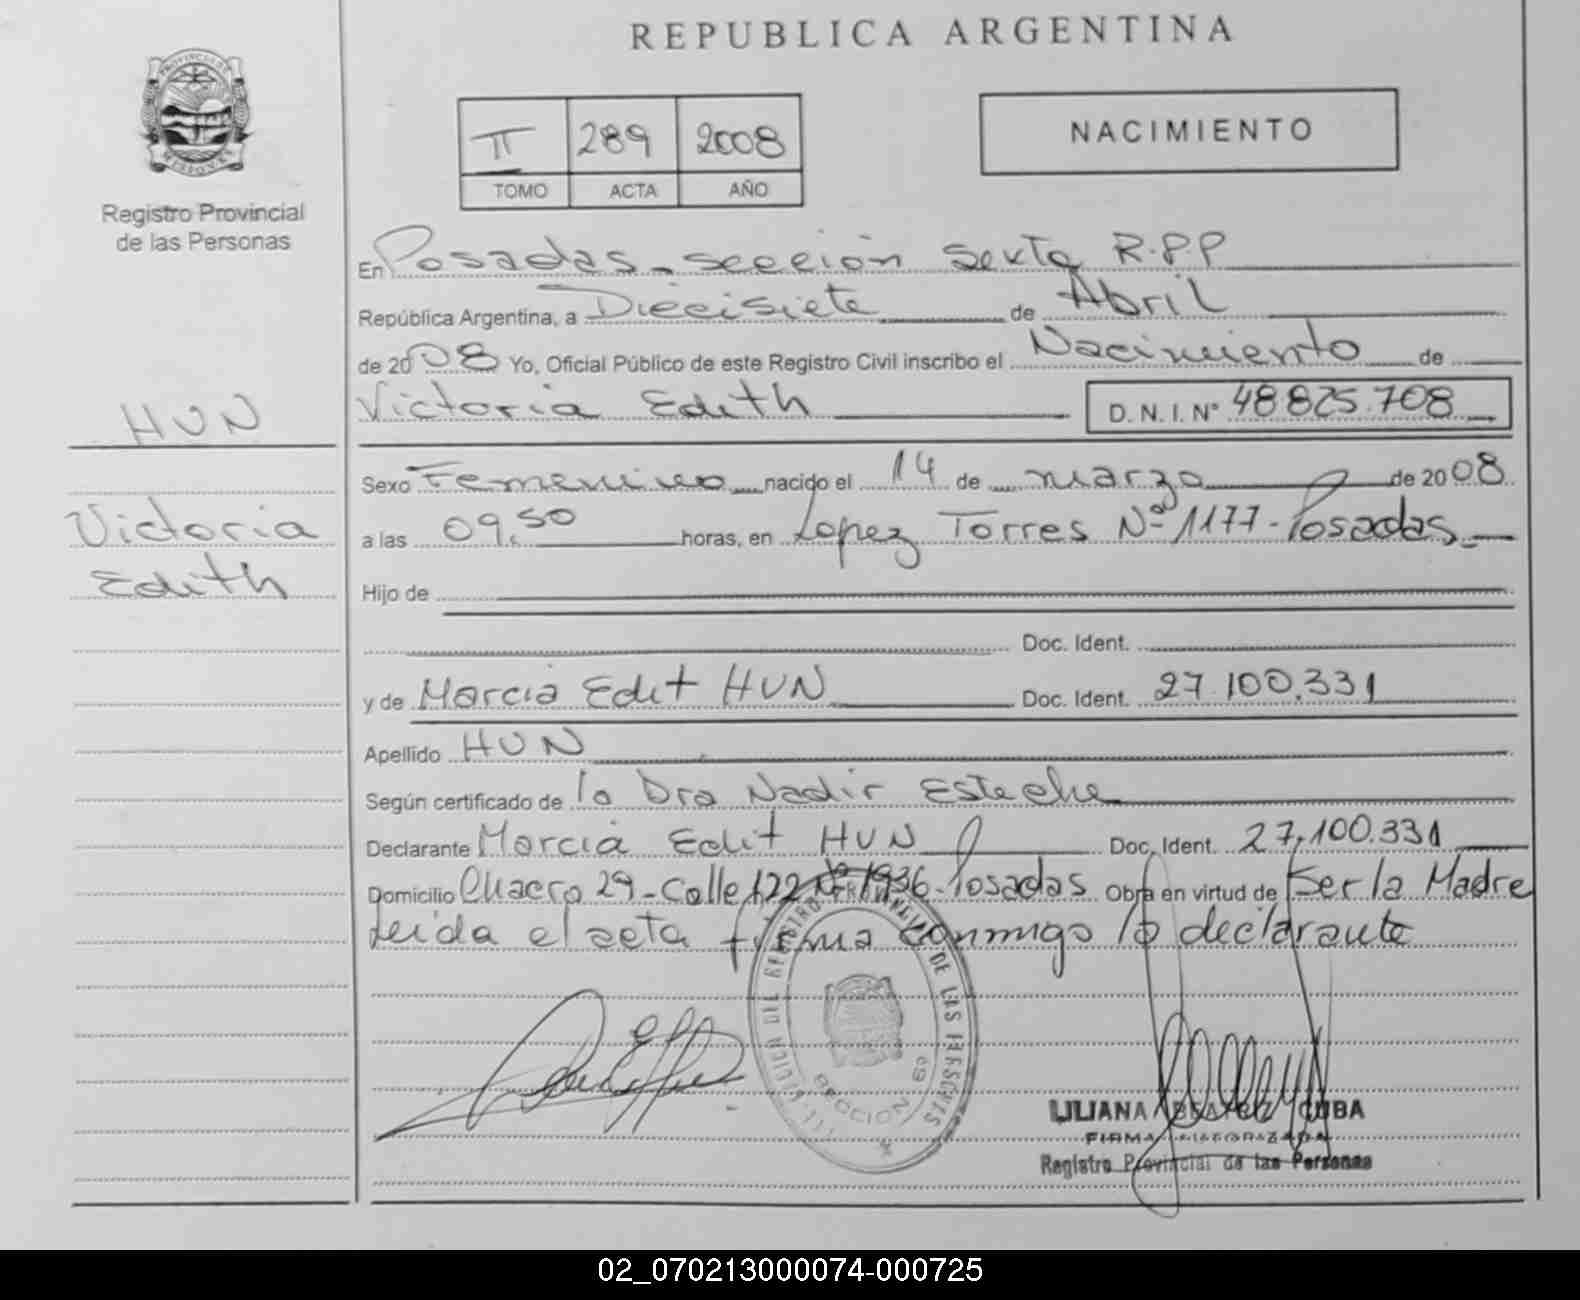 REPUBLICA ARGENTINA
PROVINCIA DE
MISIONES
Registro Provincial
de las Personas
II 289 2008
TOMO ACTA AÑO
NACIMIENTO
En Posadas - sección Sexta R.P.P
República Argentina, a Diecisiete de Abril
de 2008 Yo, Oficial Público de este Registro Civil inscribo el Nacimiento de
Victoria Edith D. N. I. Nº 48 825.708
HUN
Victoria
Edith
Sexo Femenino nacido el 14 de marzo de 2008
a las 09,50 horas, en Lopez Torres Nº 1177 - Posadas
Hijo de
Doc. Ident.
y de Marcia Edit HUN Doc. Ident. 27.100.331
Apellido HUN
Según certificado de la Dra Nadir Esteche
Declarante Marcia Edit HUN Doc. Ident. 27.100.331
Domicilio Chacra 29 - Calle 122 Nº 1936 - Posadas Obra en virtud de Ser la Madre
Leida el acta firma conmigo la declarante
REGISTRO PROVINCIAL DE LAS PERSONAS
SECCION 6ª
LILIANA BEATRIZ CUBA
FIRMA AUTORIZADA
Registro Provincial de las Personas
02_070213000074-000725